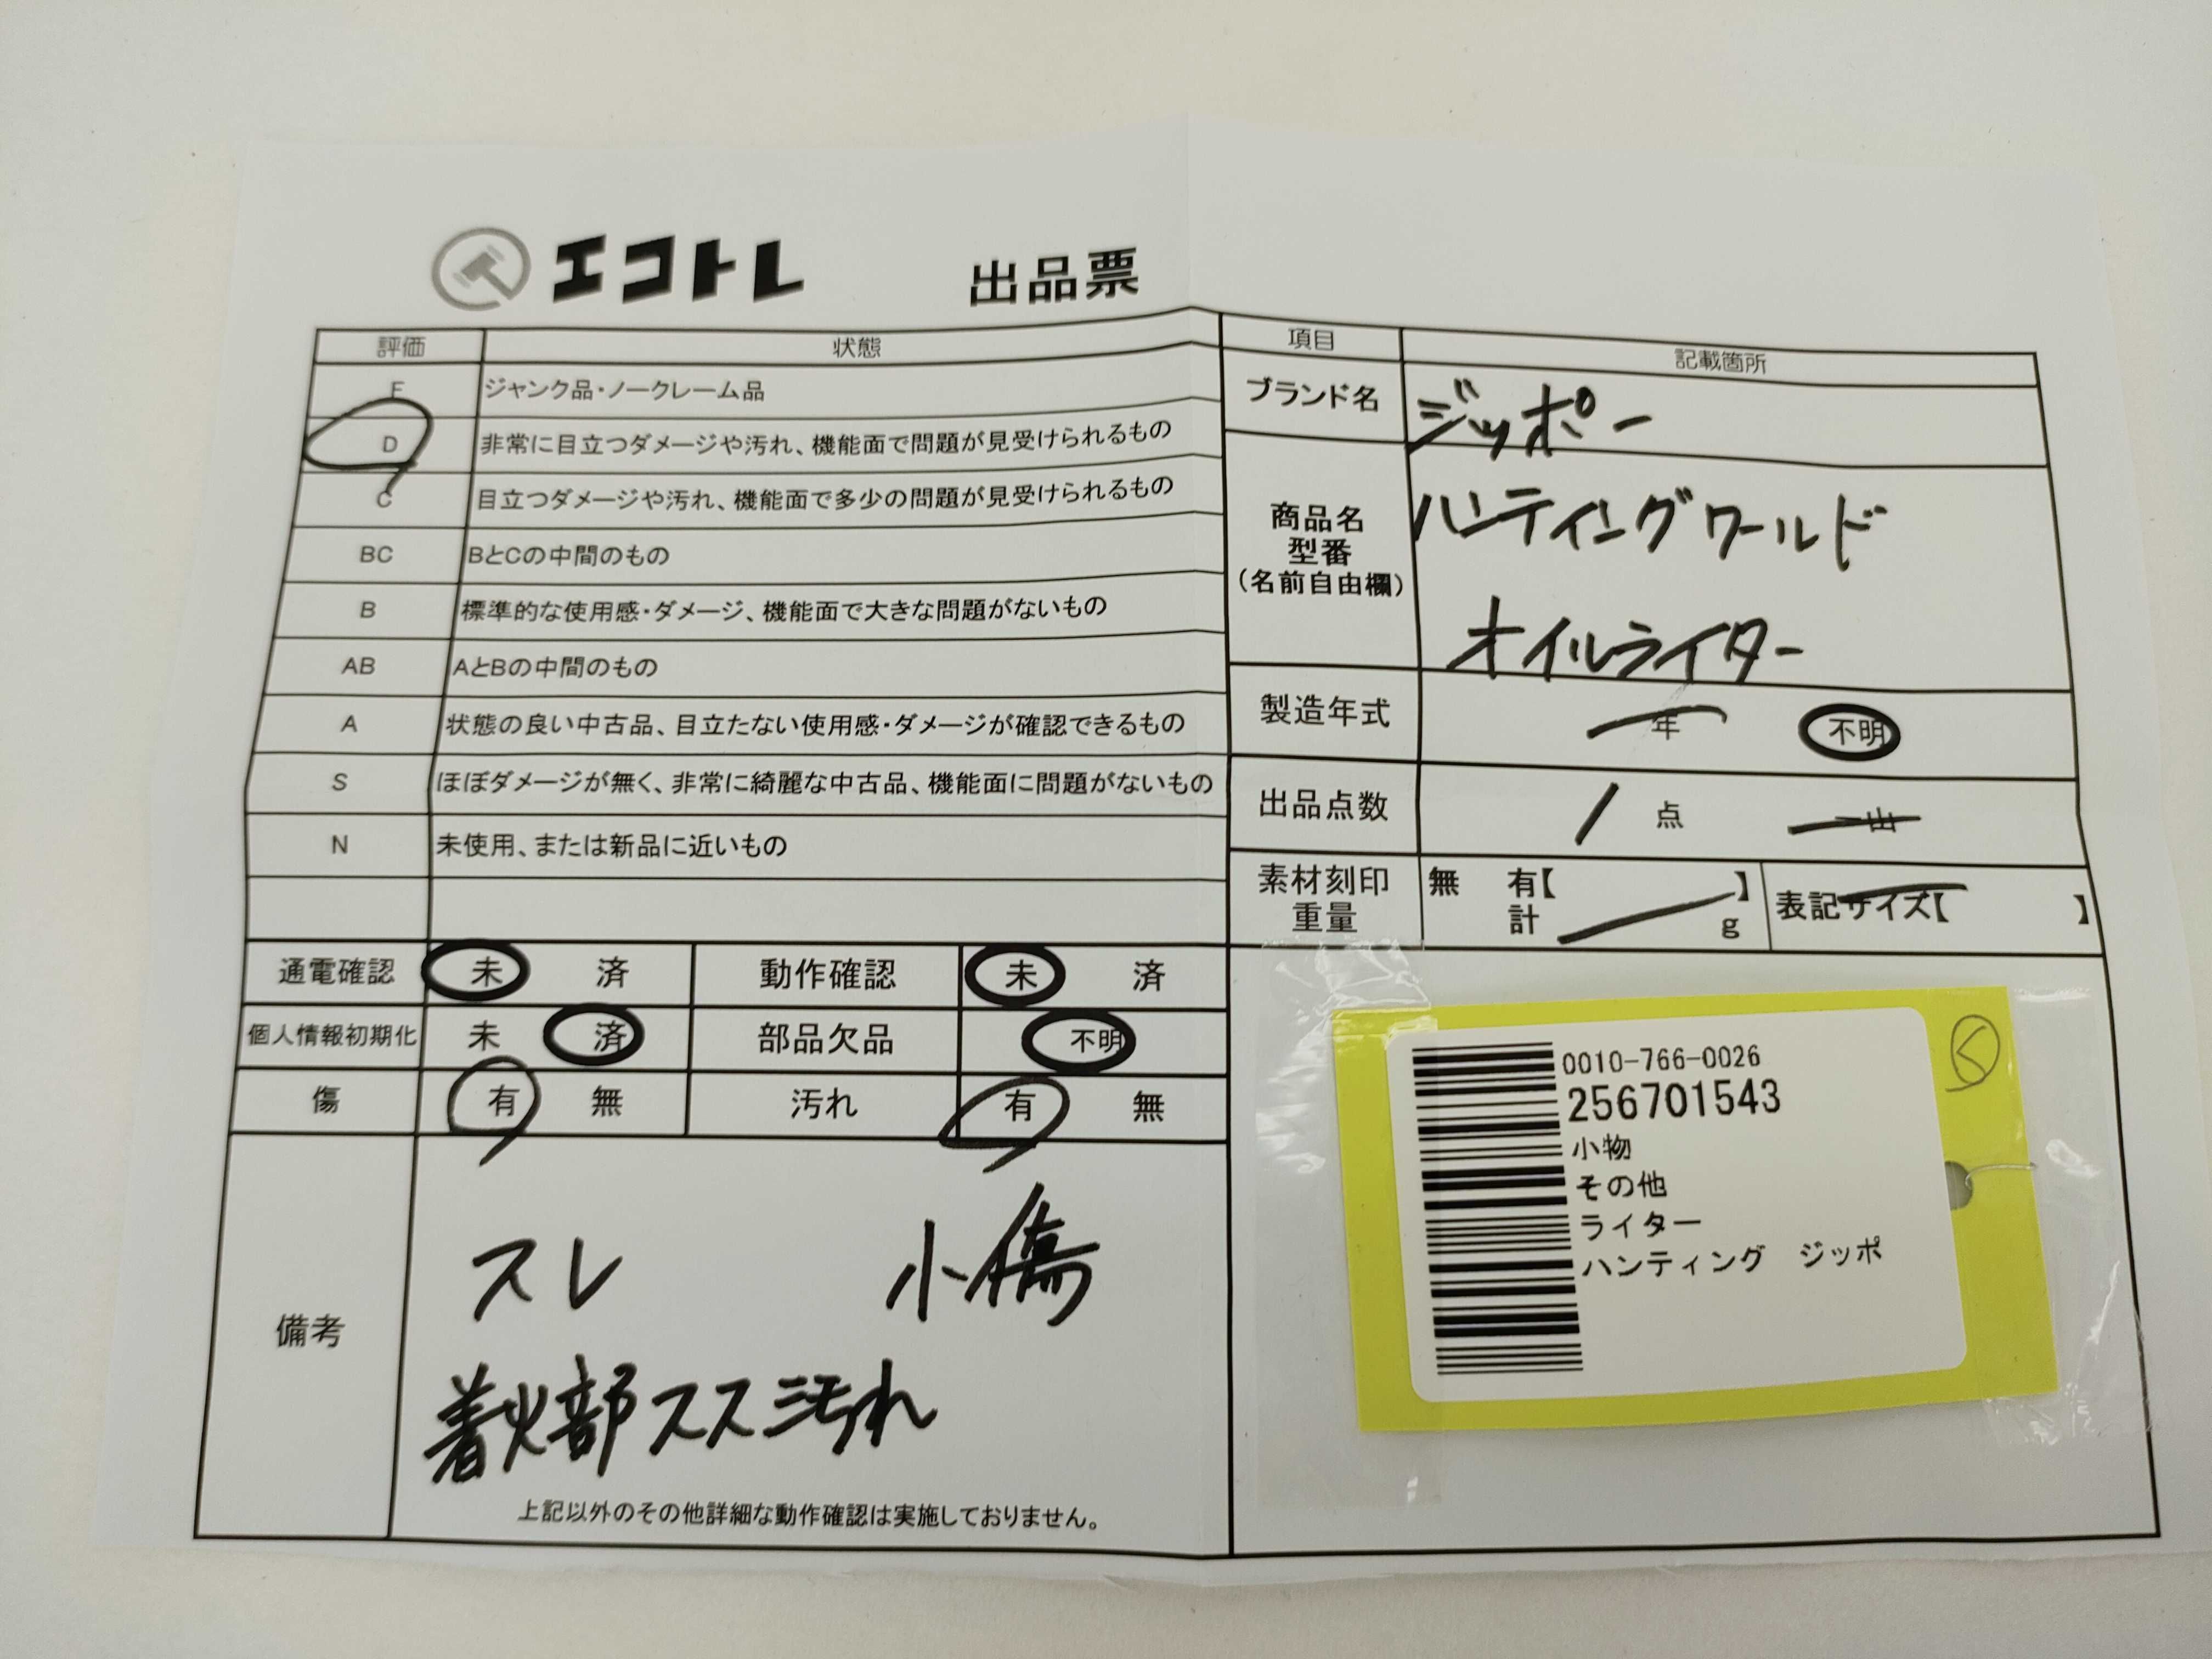 エコトレ 出品票
評価 状態
F ジャンク品・ノークレーム品
D 非常に目立つダメージや汚れ、機能面で問題が見受けられるもの
C 目立つダメージや汚れ、機能面で多少の問題が見受けられるもの
BC BとCの中間のもの
B 標準的な使用感・ダメージ、機能面で大きな問題がないもの
AB AとBの中間のもの
A 状態の良い中古品、目立たない使用感・ダメージが確認できるもの
S ほぼダメージが無く、非常に綺麗な中古品、機能面に問題がないもの
N 未使用、または新品に近いもの
通電確認 未 済 動作確認 未 済
個人情報初期化 未 済 部品欠品 不明
傷 有 無 汚れ 有 無
備考
スレ 小傷
着火部スス汚れ
上記以外のその他詳細な動作確認は実施しておりません。
項目 記載箇所
ブランド名 ジッポー
商品名
型番
(名前自由欄)
ハンティングワールド
オイルライター
製造年式 年 不明
出品点数 1 点 一山
素材刻印 無 有【 】 表記サイズ【 】
重量 計 g
0010-766-0026
256701543
小物
その他
ライター
ハンティング ジッポ